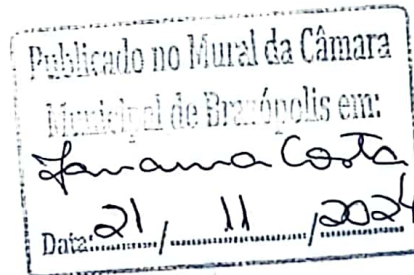 Publicado no Mural da Câmara
Municipal de Brazópolis em:
Janaina Costa
Data: 21/11/2024